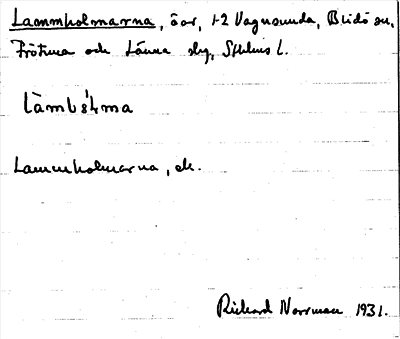 Lammholmarna, öar, 1-2 Vagnsunda, Blidö sn,
Frötuna och Länna slg, Sthlms l.
Làmbólma
Lammholmarna, ek.
Rickard Norrman 1931.